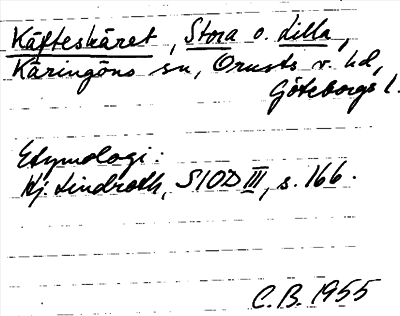 Käfteskäret, Stora o. Lilla,
Käringöns sn, Orusts v. hd,
Göteborgs l.
Etymologi:
Hj. Lindroth, SIOD III, s. 166.
C.B. 1955